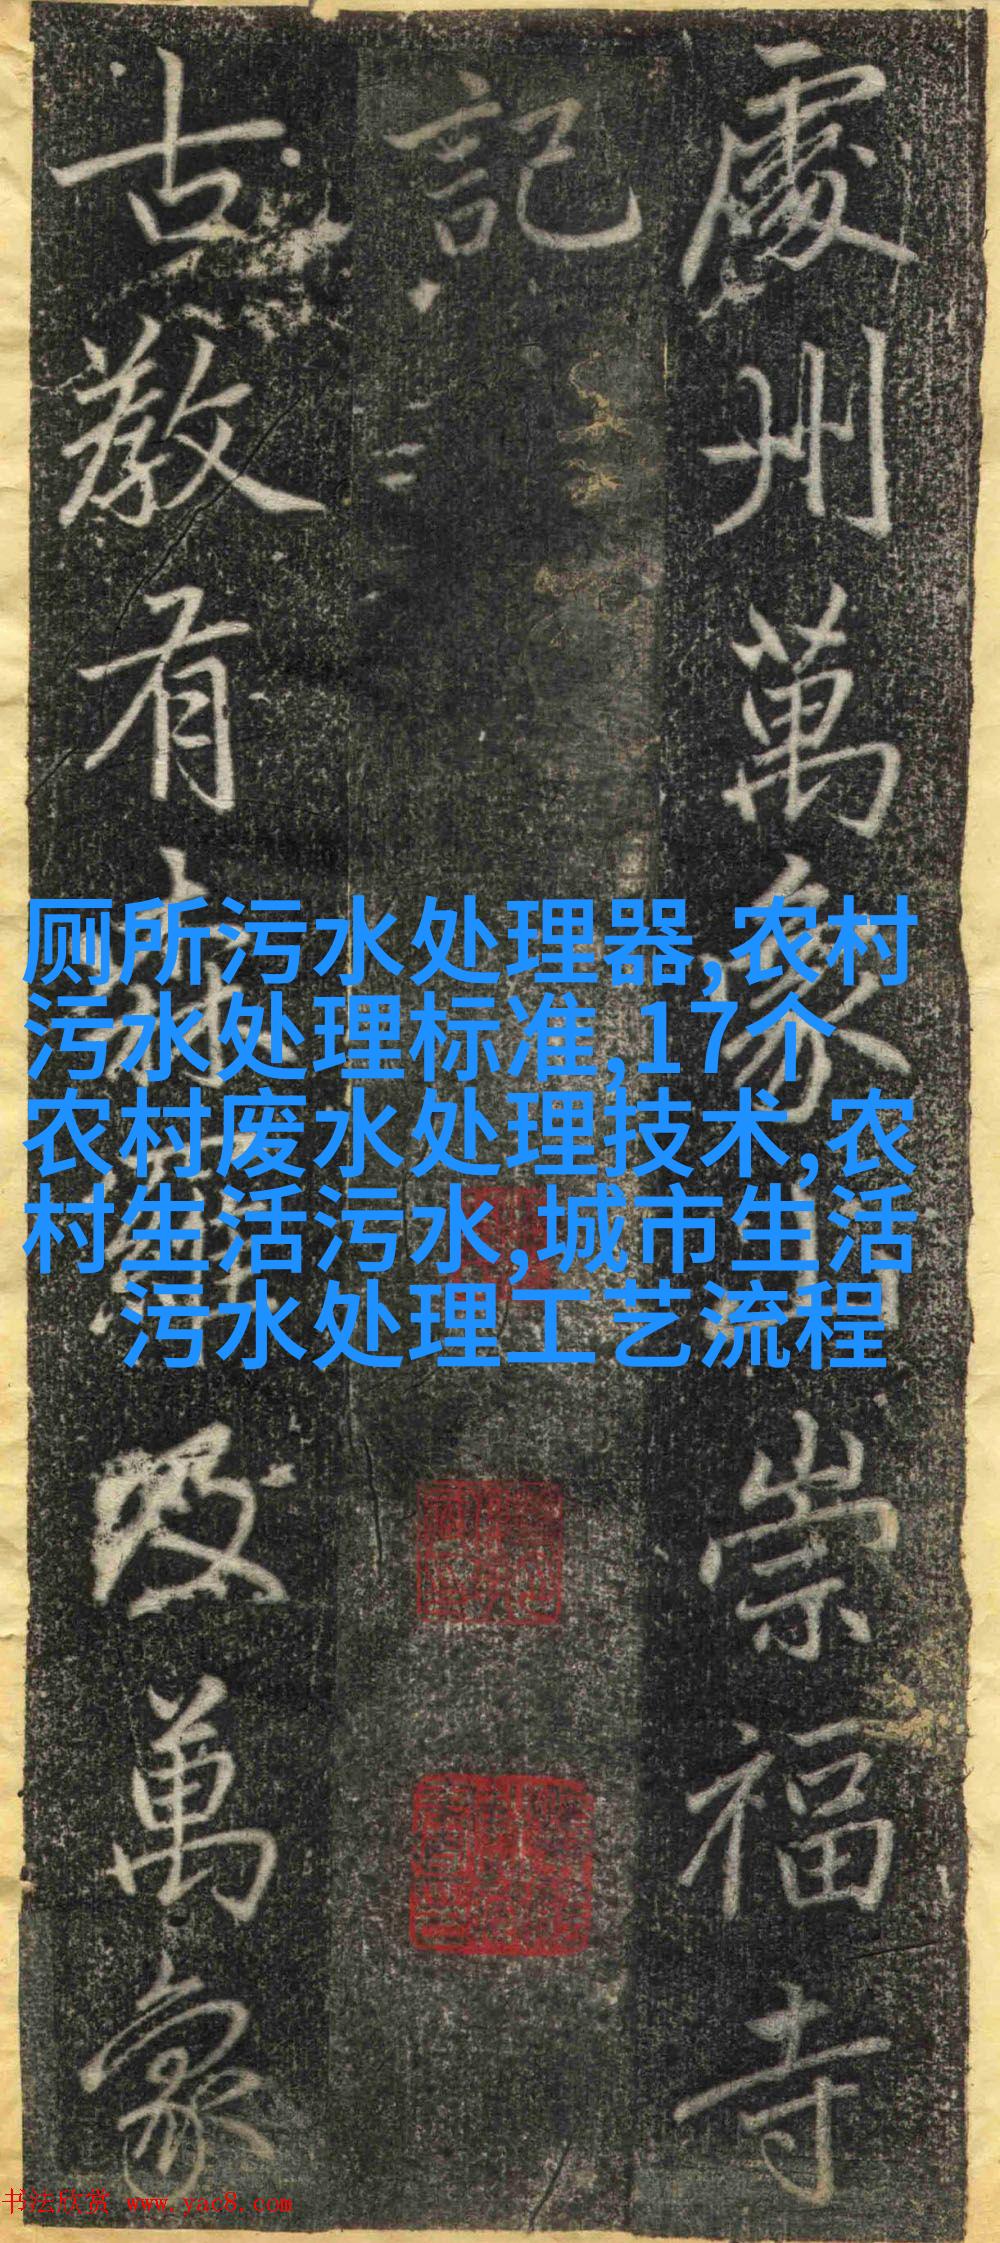 處州萬象山崇福寺
記
古教有森羅及萬象
厕所污水处理器,农村
污水处理标准,17个
农村废水处理技术,农
村生活污水,城市生活
污水处理工艺流程
书法欣赏 www.yac8.com